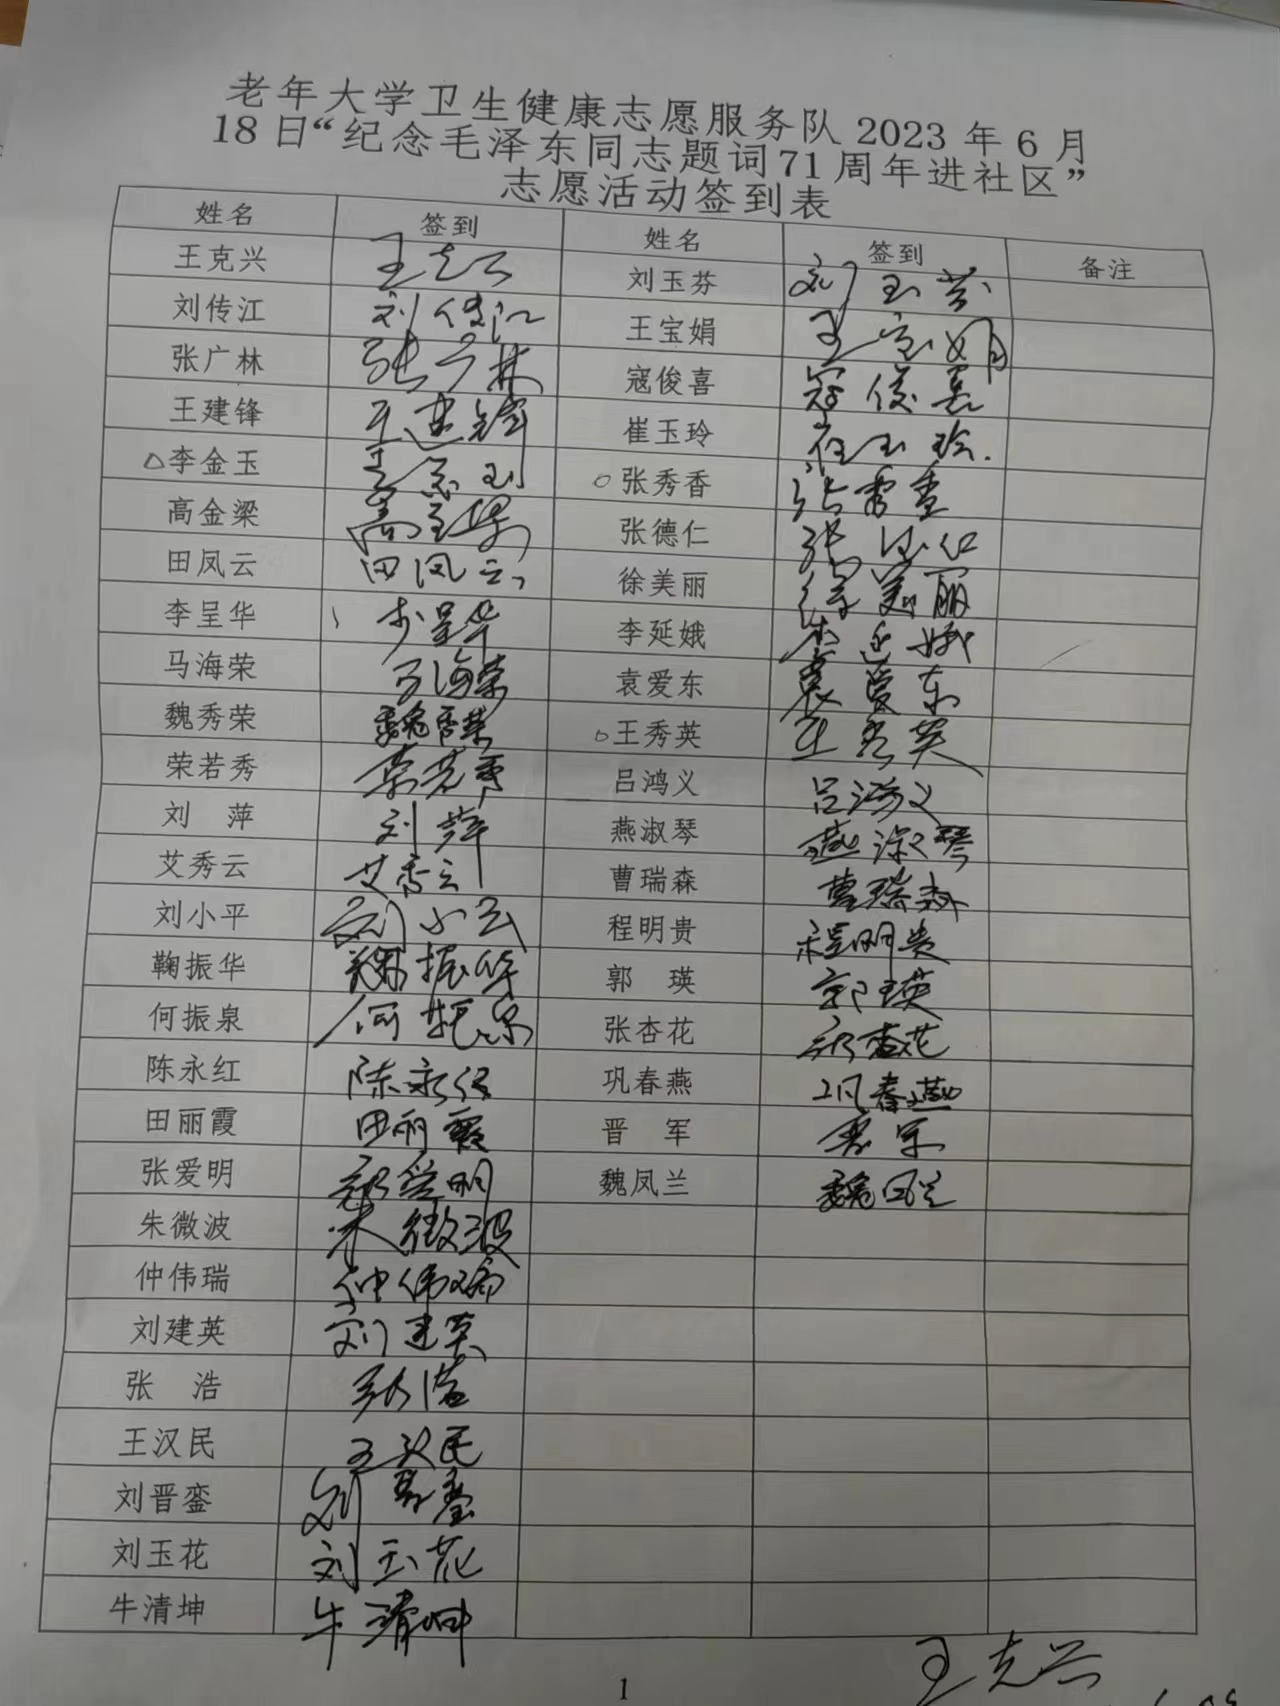 老年大学卫生健康志愿服务队 2023 年 6 月
18 日“纪念毛泽东同志题词71 周年进社区”
志愿活动签到表
姓名 签到 姓名 签到 备注
王克兴 王克兴 刘玉芬 刘玉芬
刘传江 刘传江 王宝娟 王宝娟
张广林 张广林 寇俊喜 寇俊喜
王建锋 王建锋 崔玉玲 崔玉玲
△李金玉 李金玉 ○张秀香 张秀香
高金梁 高金梁 张德仁 张德仁
田凤云 田凤云 徐美丽 徐美丽
李呈华 李呈华 李延娥 李延娥
马海荣 马海荣 袁爱东 袁爱东
魏秀荣 魏秀荣 ○王秀英 王秀英
荣若秀 荣若秀 吕鸿义 吕鸿义
刘 萍 刘萍 燕淑琴 燕淑琴
艾秀云 艾秀云 曹瑞森 曹瑞森
刘小平 刘小平 程明贵 程明贵
鞠振华 鞠振华 郭 瑛 郭瑛
何振泉 何振泉 张杏花 张杏花
陈永红 陈永红 巩春燕 巩春燕
田丽霞 田丽霞 晋 军 晋军
张爱明 张爱明 魏凤兰 魏凤兰
朱微波 朱微波
仲伟瑞 仲伟瑞
刘建英 刘建英
张 浩 张浩
王汉民 王汉民
刘晋銮 刘晋銮
刘玉花 刘玉花
牛清坤 牛清坤
王克兴
1